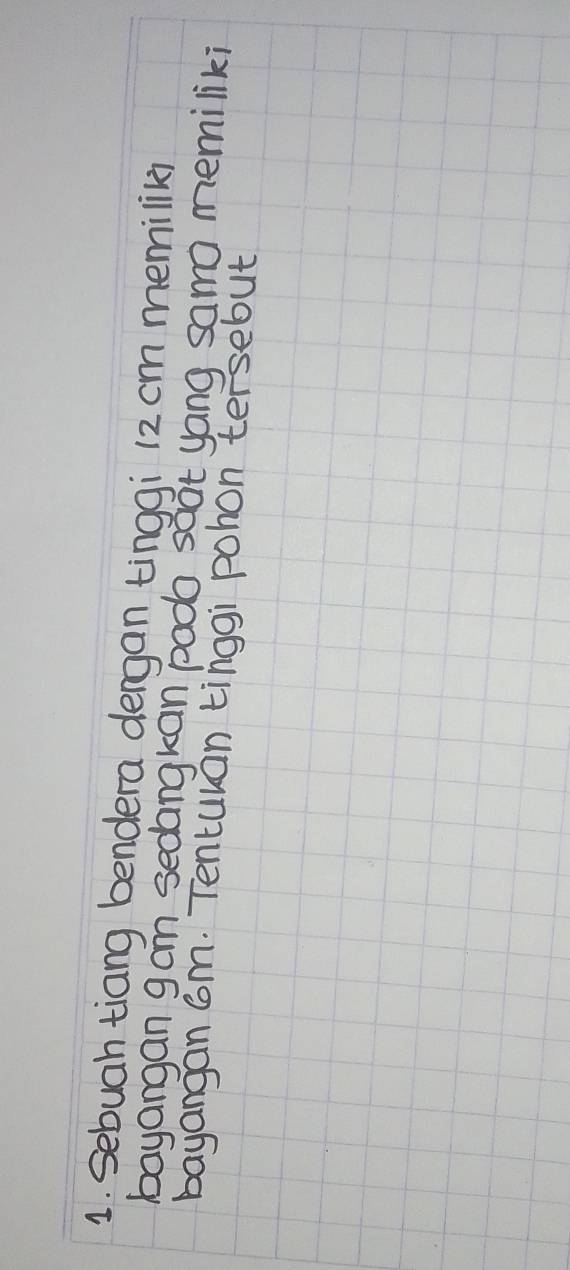 1. Sebuah tiang bendera dengan tinggi 12 cm memiliki
bayangan 9 cm sedangkan pada saat yang sama memiliki
bayangan 6m. Tentukan tinggi pohon tersebut